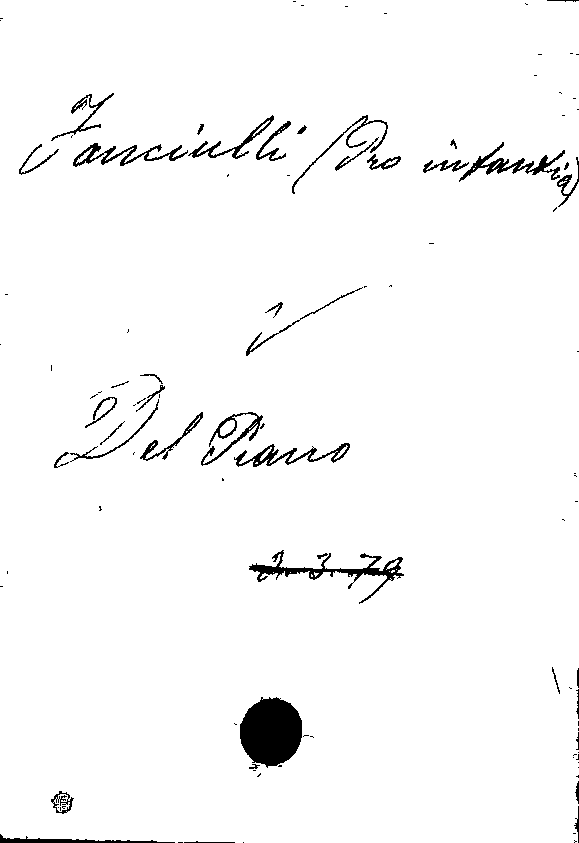 Fanciulli (Pro infantia)
v
Del Piano
2. 3. 79